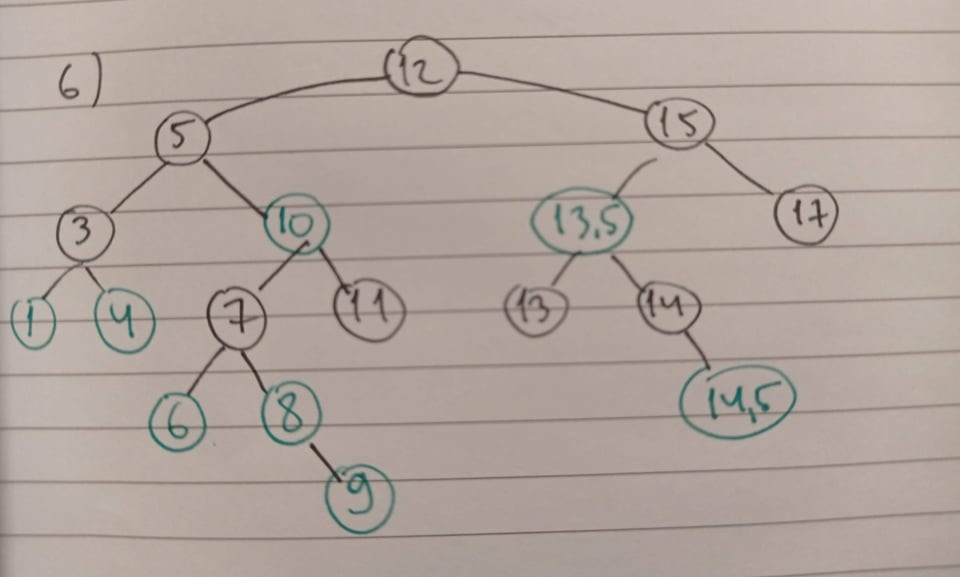 6)
12
5 15
3 10 13,5 17
1 4 7 11 13 14
6 8 14,5
9